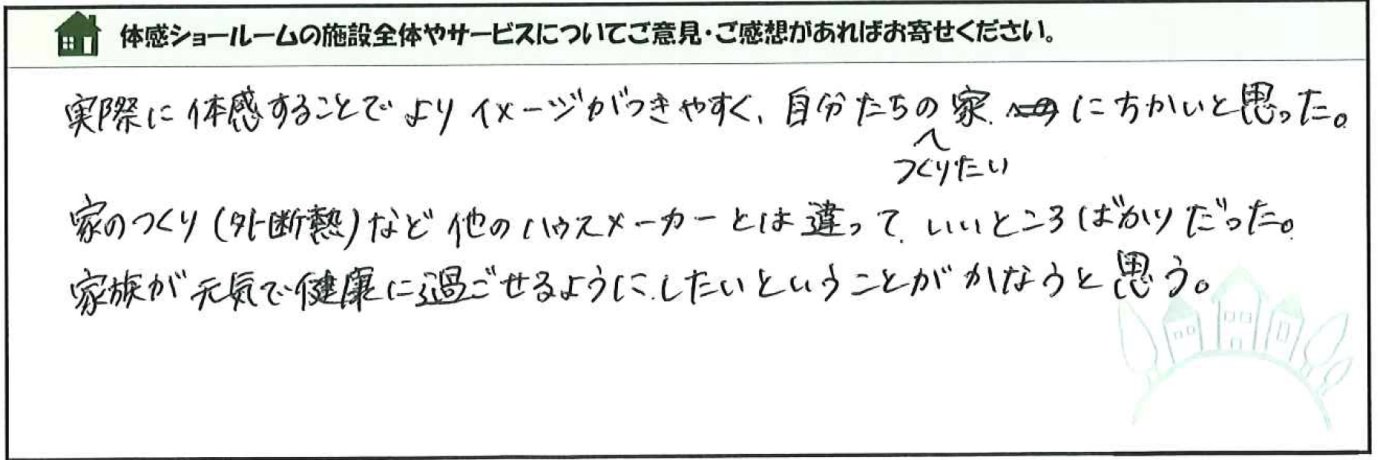 体感ショールームの施設全体やサービスについてご意見・ご感想があればお寄せください。
実際に体感することでよりイメージがつきやすく、自分たちのつくりたい家にちかいと思った。
家のつくり(外断熱)など他のハウスメーカーとは違って、いいところばかりだった。
家族が元気で健康に過ごせるようにしたいということがかなうと思う。